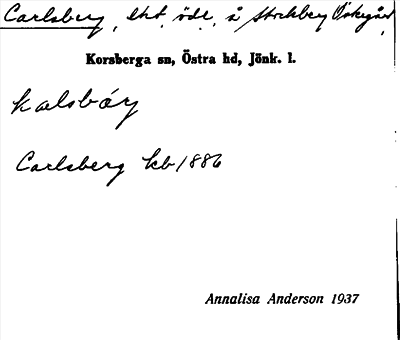 Carlsberg, lht, öde, å Stockberg Östregård,
Korsberga sn, Östra hd, Jönk. l.
kalsbärj
Carlsberg kb 1886
Annalisa Anderson 1937